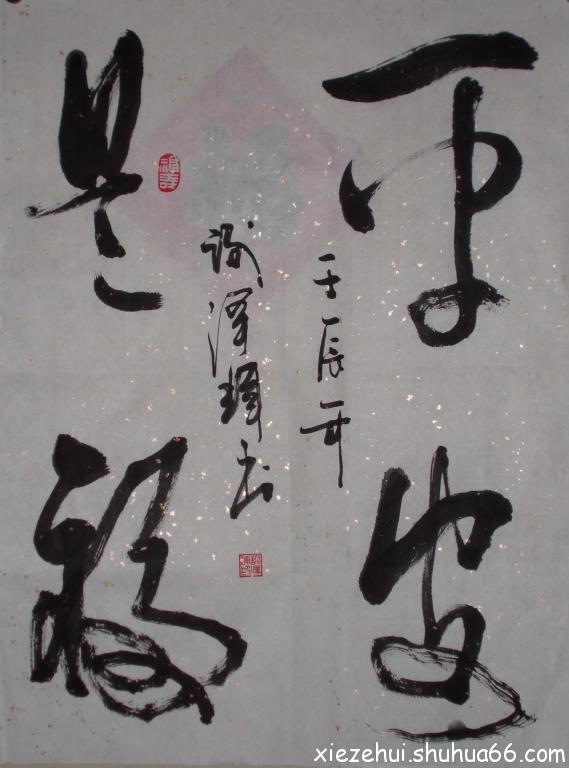 平安
是福
壬辰年
谢泽辉书
xiezehui.shuhua66.com